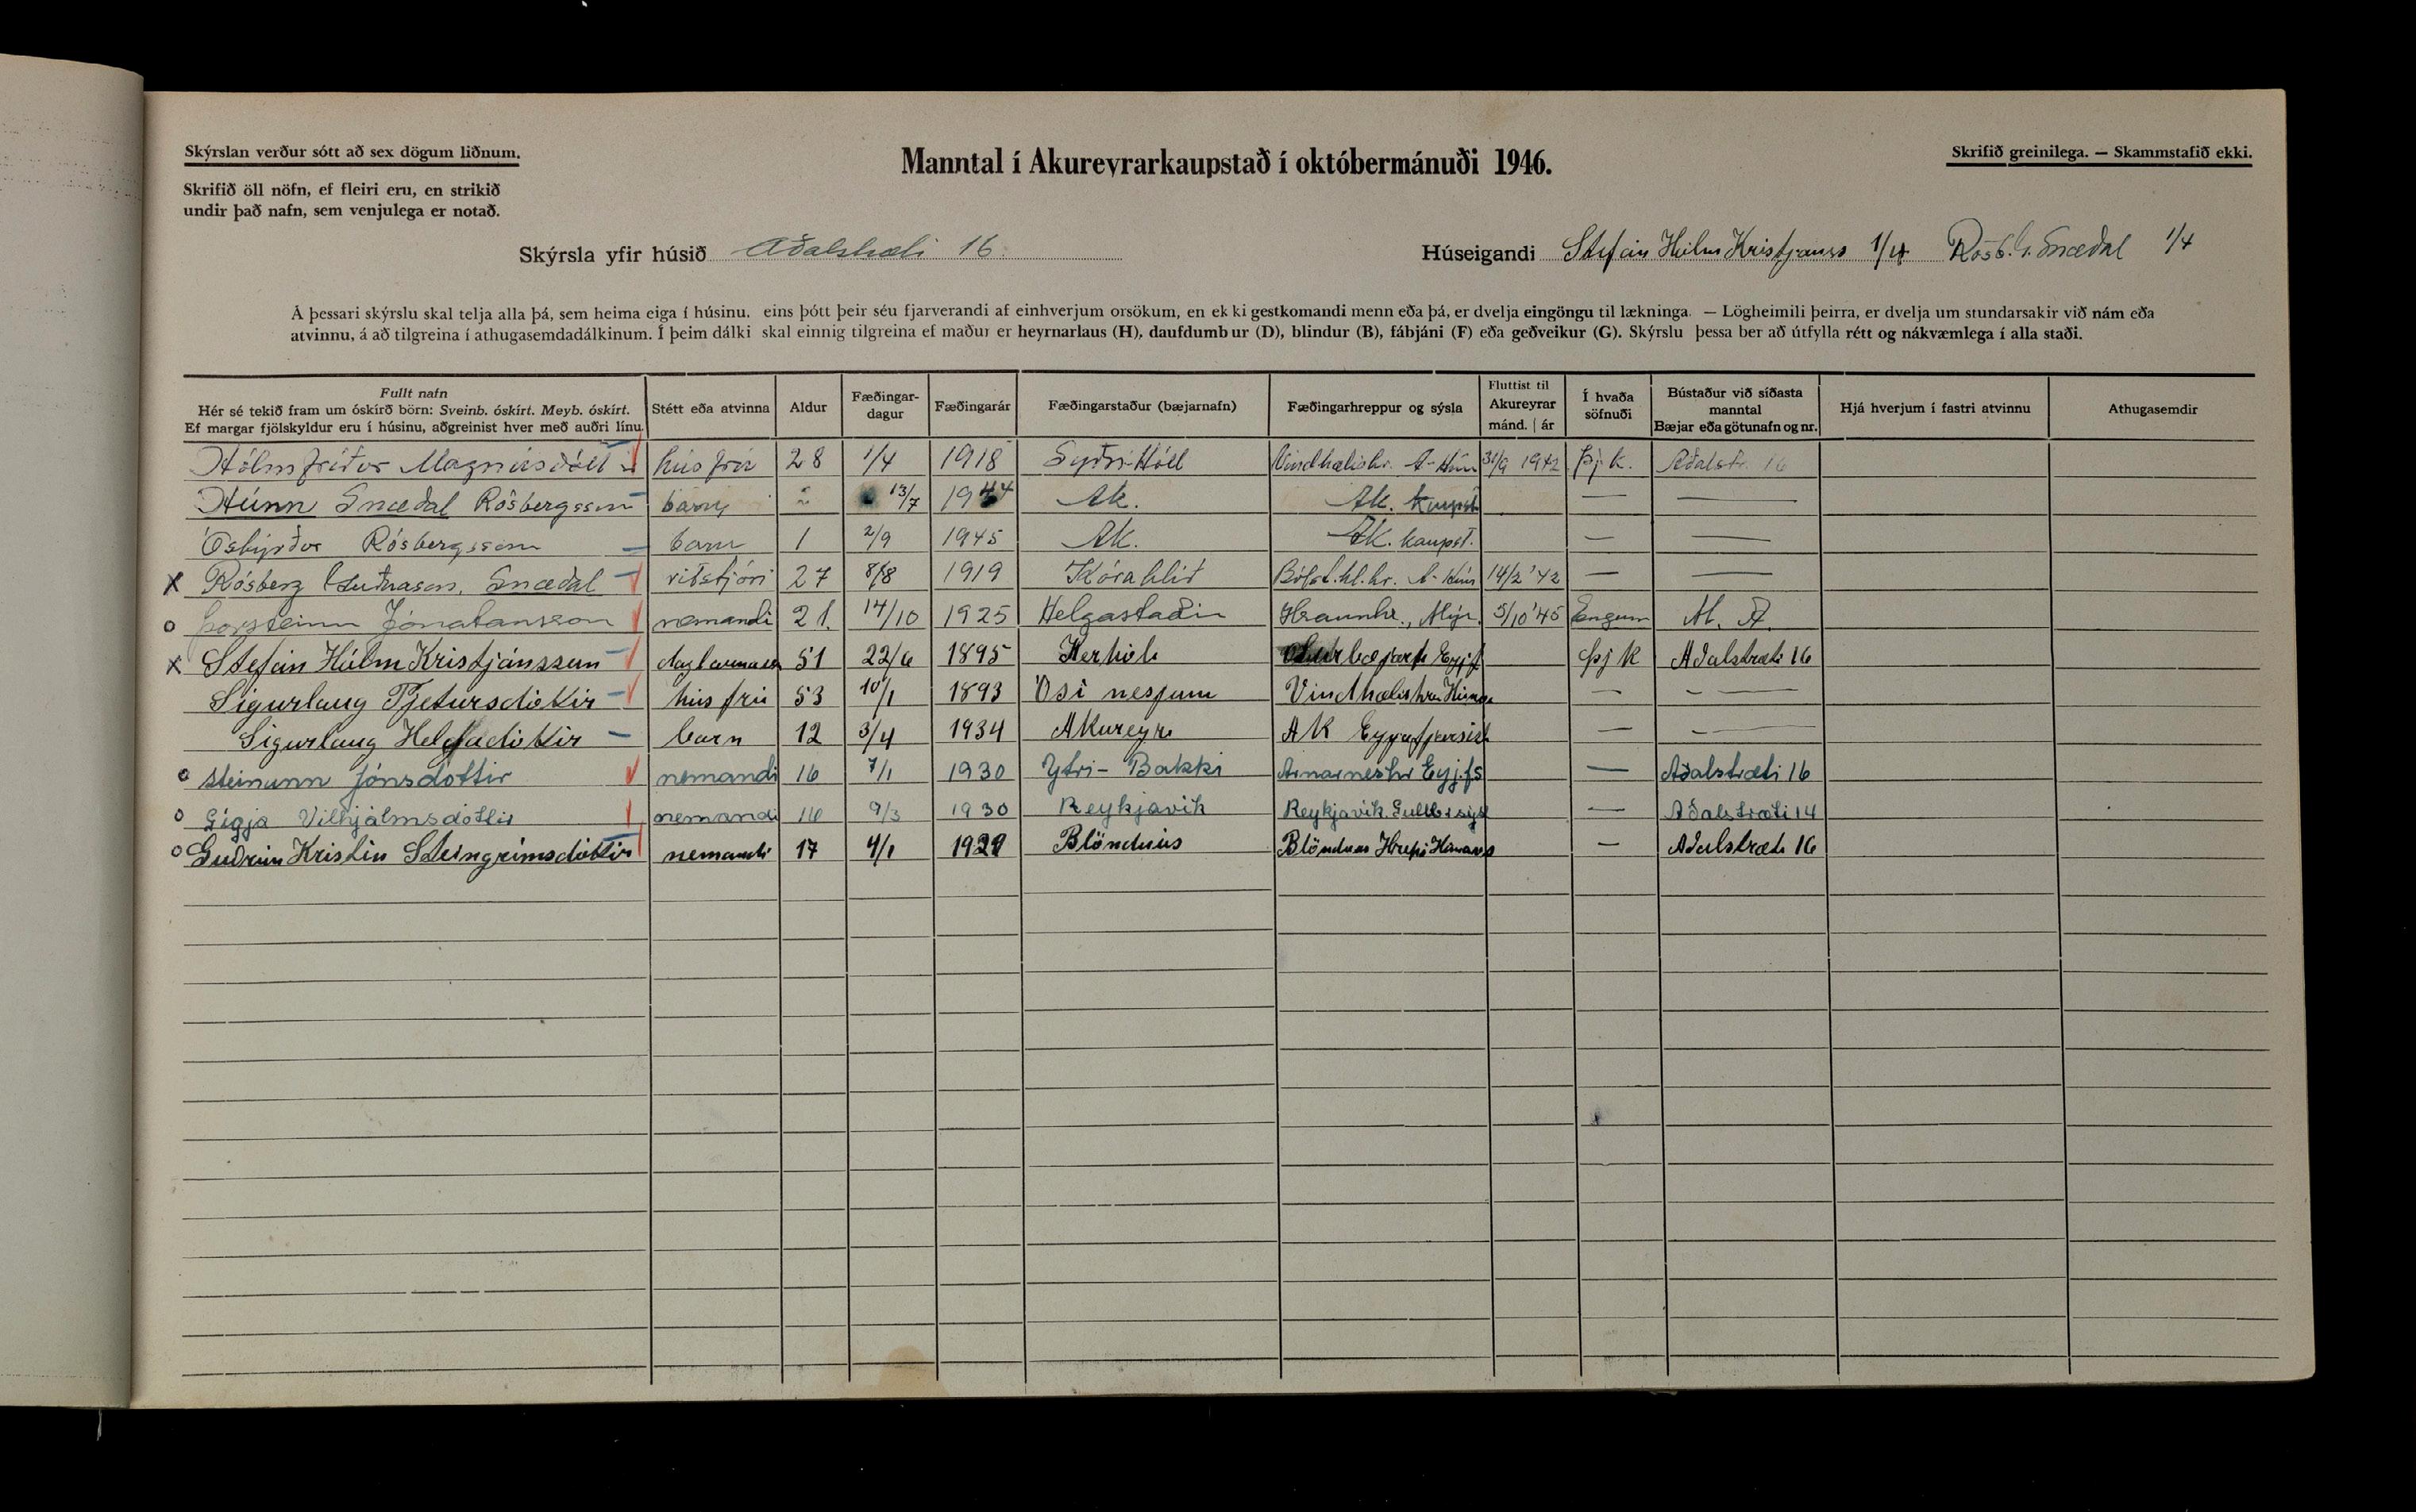 Skýrslan verður sótt að sex dögum liðnum.
Manntal í Akureyrarkaupstað í októbermánuði 1946.
Skrifið greinilega. — Skammstafið ekki.
Skrifið öll nöfn, ef fleiri eru, en strikið
undir það nafn, sem venjulega er notað.
Skýrsla yfir húsið Aðalstræti 16.
Húseigandi Stefán Hólm Kristjánss 1/4 Rósb. G. Snædal 1/4
Á þessari skýrslu skal telja alla þá, sem heima eiga í húsinu, eins þótt þeir séu fjarverandi af einhverjum orsökum, en ekki gestkomandi menn eða þá, er dvelja eingöngu til lækninga. — Lögheimili þeirra, er dvelja um stundarsakir við nám eða
atvinnu, á að tilgreina í athugasemdadálkinum. Í þeim dálki skal einnig tilgreina ef maður er heyrnarlaus (H), daufdumbur (D), blindur (B), fábjáni (F) eða geðveikur (G). Skýrslu þessa ber að útfylla rétt og nákvæmlega í alla staði.
Fullt nafn
Hér sé tekið fram um óskírð börn: Sveinb. óskírt. Meyb. óskírt.
Ef margar fjölskyldur eru í húsinu, aðgreinist hver með auðri línu.
Stétt eða atvinna
Aldur
Fæðingar-
dagur
Fæðingarár
Fæðingarstaður (bæjarnafn)
Fæðingarhreppur og sýsla
Fluttist til
Akureyrar
mánd. | ár
Í hvaða
söfnuði
Bústaður við síðasta
manntal
Bæjar eða götunafn og nr.
Hjá hverjum í fastri atvinnu
Athugasemdir
Hólmfríður Magnúsdóttir húsfrú 28 1/4 1918 Syðri-Hóll Vindhælishr. A-Hún 31/9 1942 Þj.k. Aðalstr. 16
Húnn Snædal Rósbergsson barn 2 13/7 1944 Ak. Ak. kaupst — —
Rósbergsson — barn 1 2/9 1945 Ak. Ak. kaupst. — —
x Rósberg Guðnason Snædal ritstjóri 27 8/8 1919 Kárahlíð Bólst.hl.hr. A-Hún 14/2 '42 — —
o Þorsteinn Jónatansson nemandi 21. 17/10 1925 Helgastaðir Hraunhr., Mýr. 5/10 '45 Engum M. A.
x Stefán Hólm Kristjánsson daglaunam 51 22/6 1895 Kerhóli Eyjf Þj K Aðalstræti 16
Sigurlaug Pjetursdóttir húsfrú 53 10/1 1893 Ósi nesjum Vindhælishr Húnav — —
Sigurlaug Helgadóttir barn 12 3/4 1934 Akureyri AK Eyjafjarsísl — —
o Steinunn Jónsdóttir nemandi 16 7/1 1930 Ytri-Bakki Arnarneshr Eyjfs — Aðalstræti 16
o Gígja Vilhjálmsdóttir nemandi 16 9/3 1930 Reykjavík Reykjavík. Gullbrsýsl — Aðalstræti 14
o Guðrún Kristín Steingrímsdóttir nemandi 17 4/1 1929 Blönduós Blönduós — Aðalstræti 16